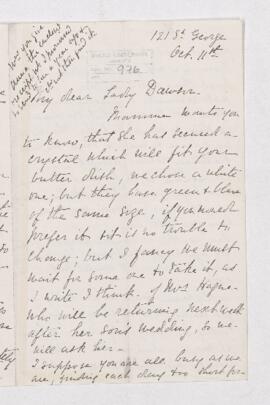 121 St. George
Oct. 11th
976
My dear Lady Dawson.
Mamma wants you
to know, that she has secured a
crystal which will fit your
butter dish, we chose a white
one; but they have green & blue
of the same size, if you would
prefer it so it is no trouble to
change; but I fancy He must
wait for some one to take it, as
I write I think. of Mrs
who will be returning next week
after her son's wedding, so we
will ask her.
I suppose you are all busy as we
are, finding each day too short for